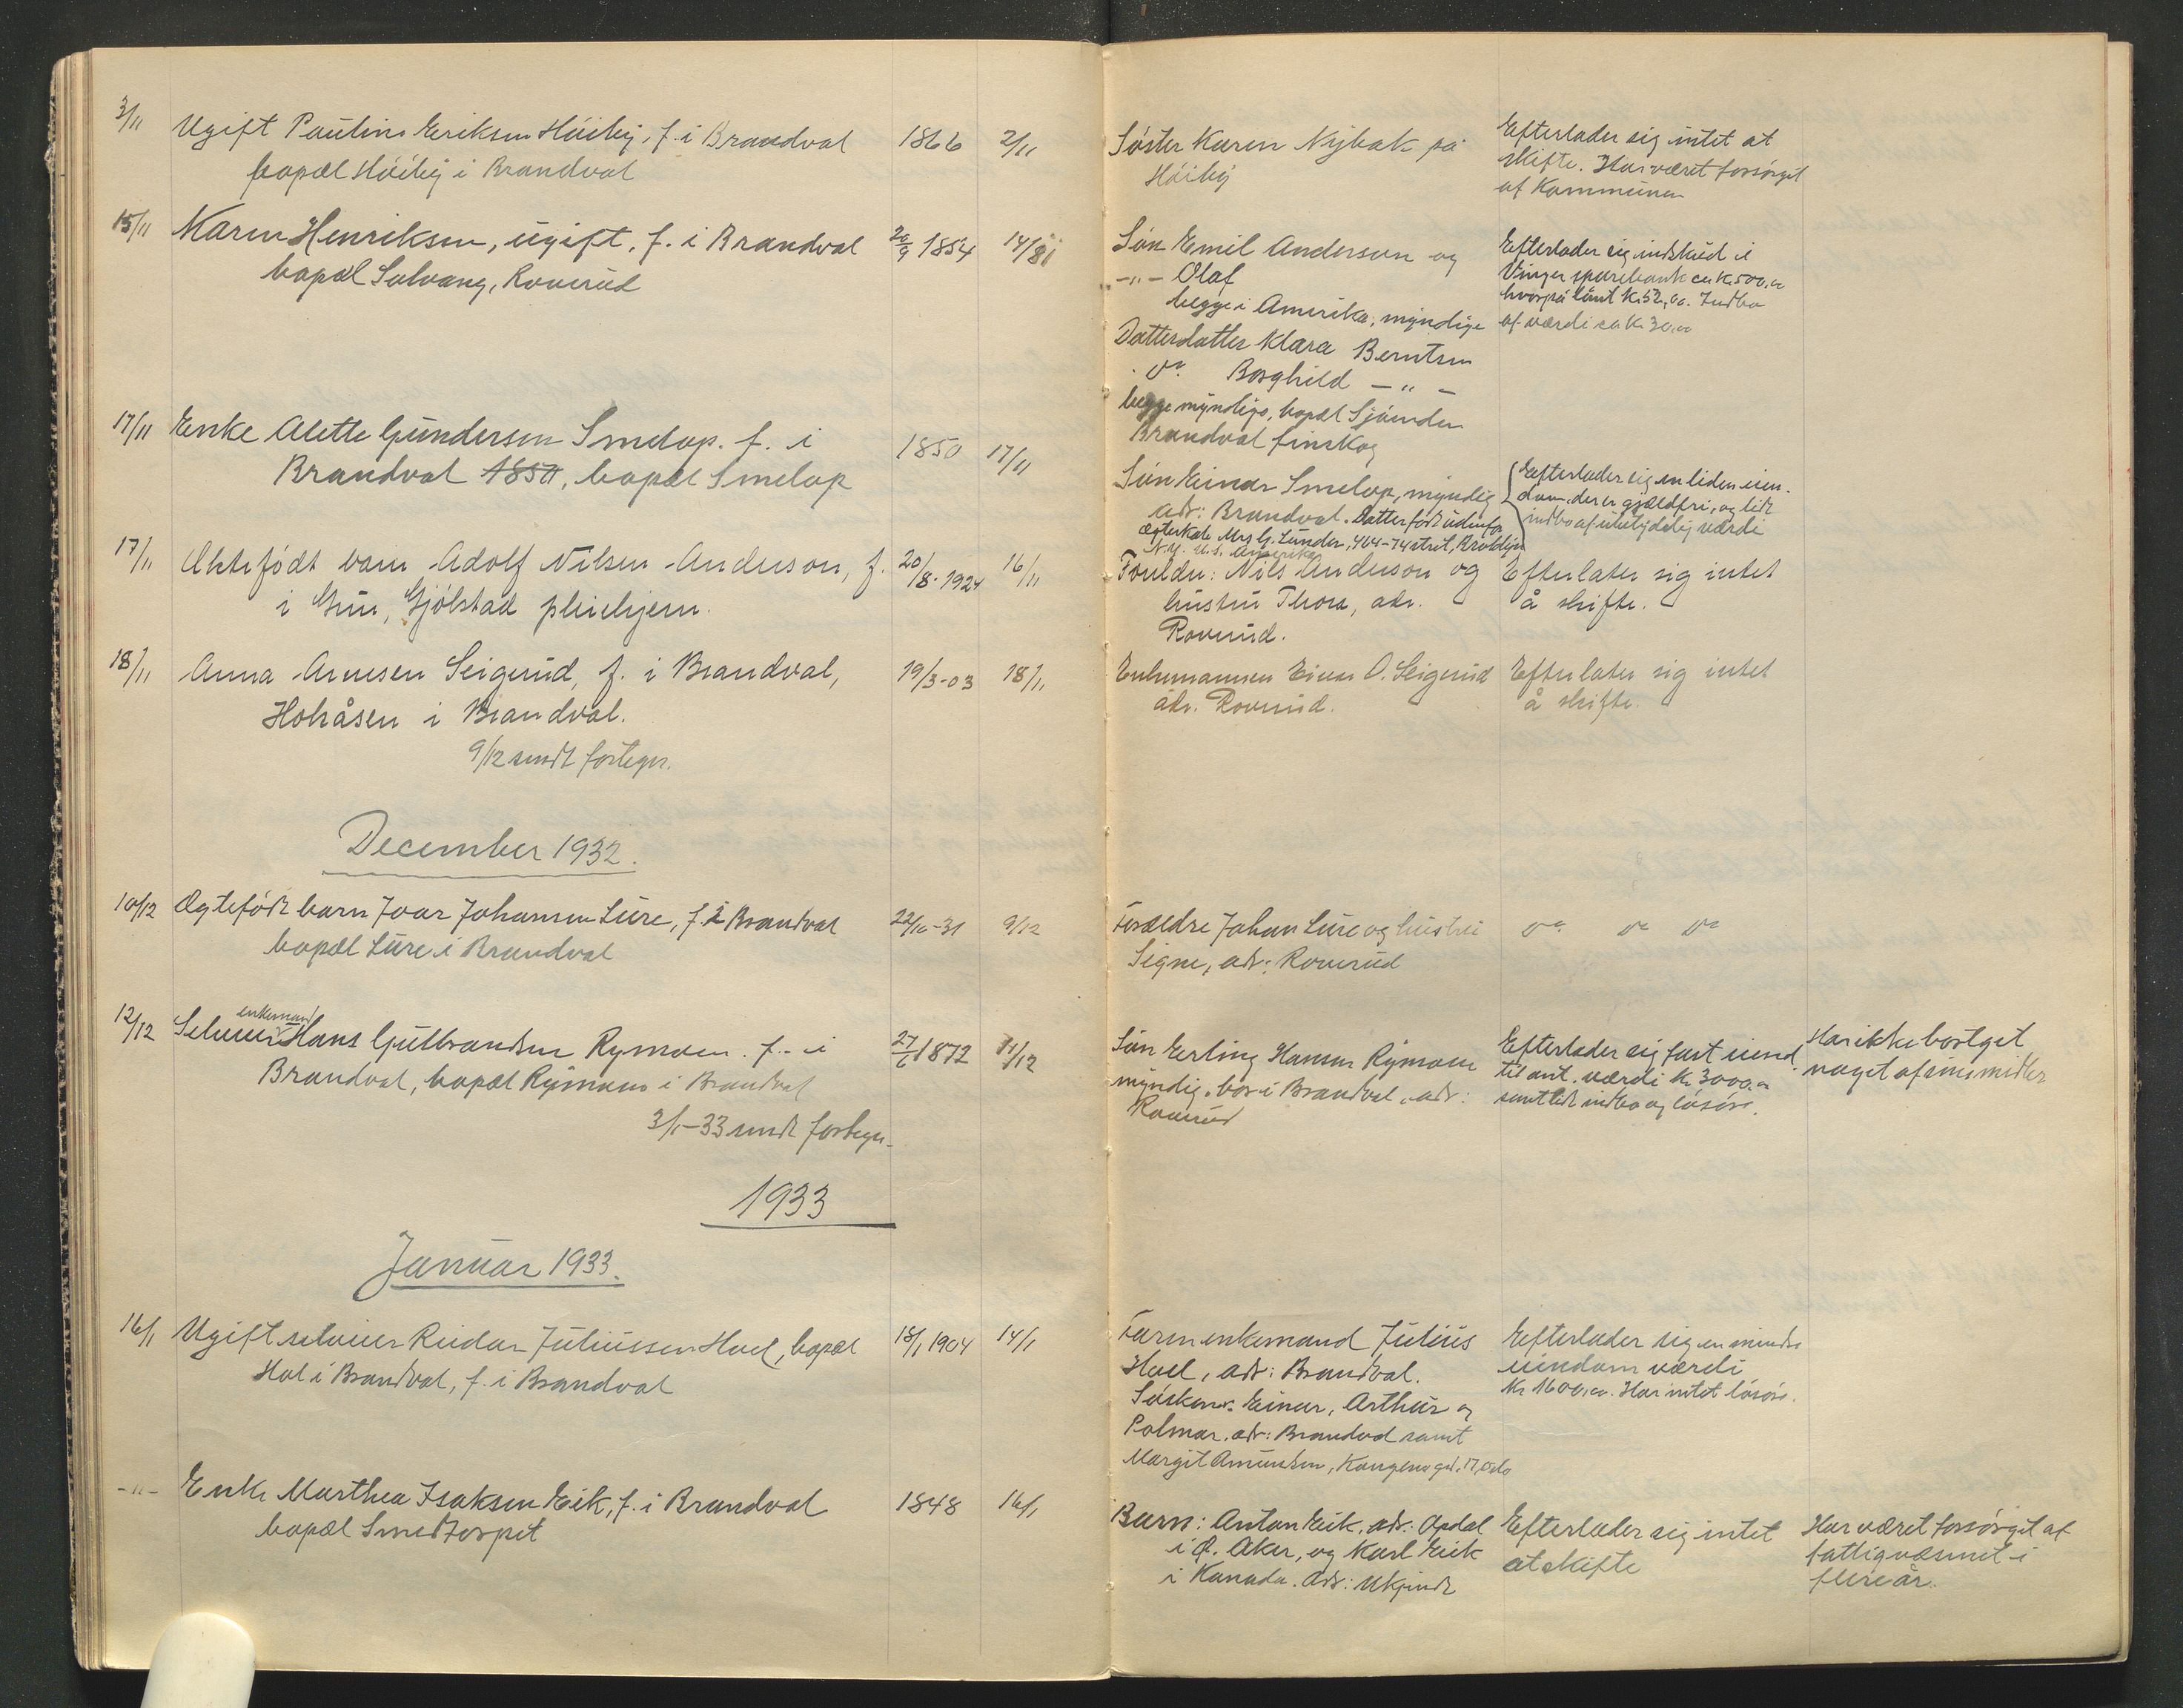 3/11 Ugift Pauline Eriksen Höiby, f. i Brandval 1866 2/11
bopæl Höiby i Brandval
Søster Karen Nybak på
Höiby
Efterlader sig intet at
skifte. Har været forsørget
af Kommunen
15/11 Maren Henriksen, ugift, f. i Brandval 20/9 1854 14/11
bopæl Solvang, Roverud
Søn Emil Anderson og
-"- Olaf
begge i Amerika, myndige
Datterdatter Klara Berntsen
do Borghild -"-
begge myndige, bopæl Sjöenden
Brandval finskog
Efterlader sig indskud i
Vinger sparebank ca K. 500,00
hvorpå lånt K. 52,00. Indbo
af værdi ca K. 30,00
17/11 Enke Alette Gundersen Smelop. f. i 1850 17/11
Brandval 1850, bopæl Smelop
Søn Einar Smelop, myndig
adr: Brandval. Datter født udenfor
ægteskab Mrs G. Lunder, 464-74 street, Broklyn
N.Y. U.S. Amerika
Efterlader sig en liden eien-
dom, der er gjældfri, og lidt
indbo af ubetydelig værdi
17/11 Ektefødt barn Adolf Nilsen Anderson, f. 20/8-1924 16/11
i Grue, Gjölstad pleiehjem.
Foreldre: Nils Anderson og
hustru Thora, adr.
Roverud.
Efterlater sig intet
å skifte.
18/11 Anna Arnesen Seigerud, f. i Brandval, 19/3-03 18/11
Hokåsen i Brandval.
9/12 sendt fortegn.
Enkemannen Einar O. Seigerud
adr. Roverud.
Efterlater sig intet
å skifte.
December 1932.
10/12 Ægtefødt barn Ivar Johansen Lure, f. i Brandval 22/10-31 9/12
bopæl Lure i Brandval
Forældre Johan Lure og hustru
Signe, adr: Roverud
do do do
12/12 Selveier enkemand Hans Gulbrandsen Rymoen. f. i 27/6 1872 11/12
Brandval, bopæl Rymoen i Brandval
3/1-33 sendt fortegn.
Søn Erling Hansen Rymoen
myndig. bor i Brandval, adr:
Roverud
Efterlader sig fast eiend.
til ant. værdi K. 3000,00
samt lidt indbo og løsøre.
Har ikke bortget
noget af sine midler
1933
Januar 1933.
16/1 Ugift selveier Reidar Juliussen Hoel, bopæl 18/1 1904 14/1
Hol i Brandval, f. i Brandval
Farm enkemand Julius
Hoel, adr: Brandval.
Søsken: Einar, Arthur og
Palmar. adr: Brandval samt
Margit Amundsen, Kongens gd. 17, Oslo
Efterlader sig en mindre
eiendom værdi
Kr 1600,00. Har intet løsøre.
-"- Enke Marthea Isaksen Eik, f. i Brandval 1848 16/1
bopæl Smedtorpet
Barn: Anton Eik, adr: Opdal
i Ø. Aker, og Karl Eik
i Kanada. Adr: Ukjendt
Efterlader sig intet
at skifte
Har været forsørget af
fattigvæsenet i
flere år.